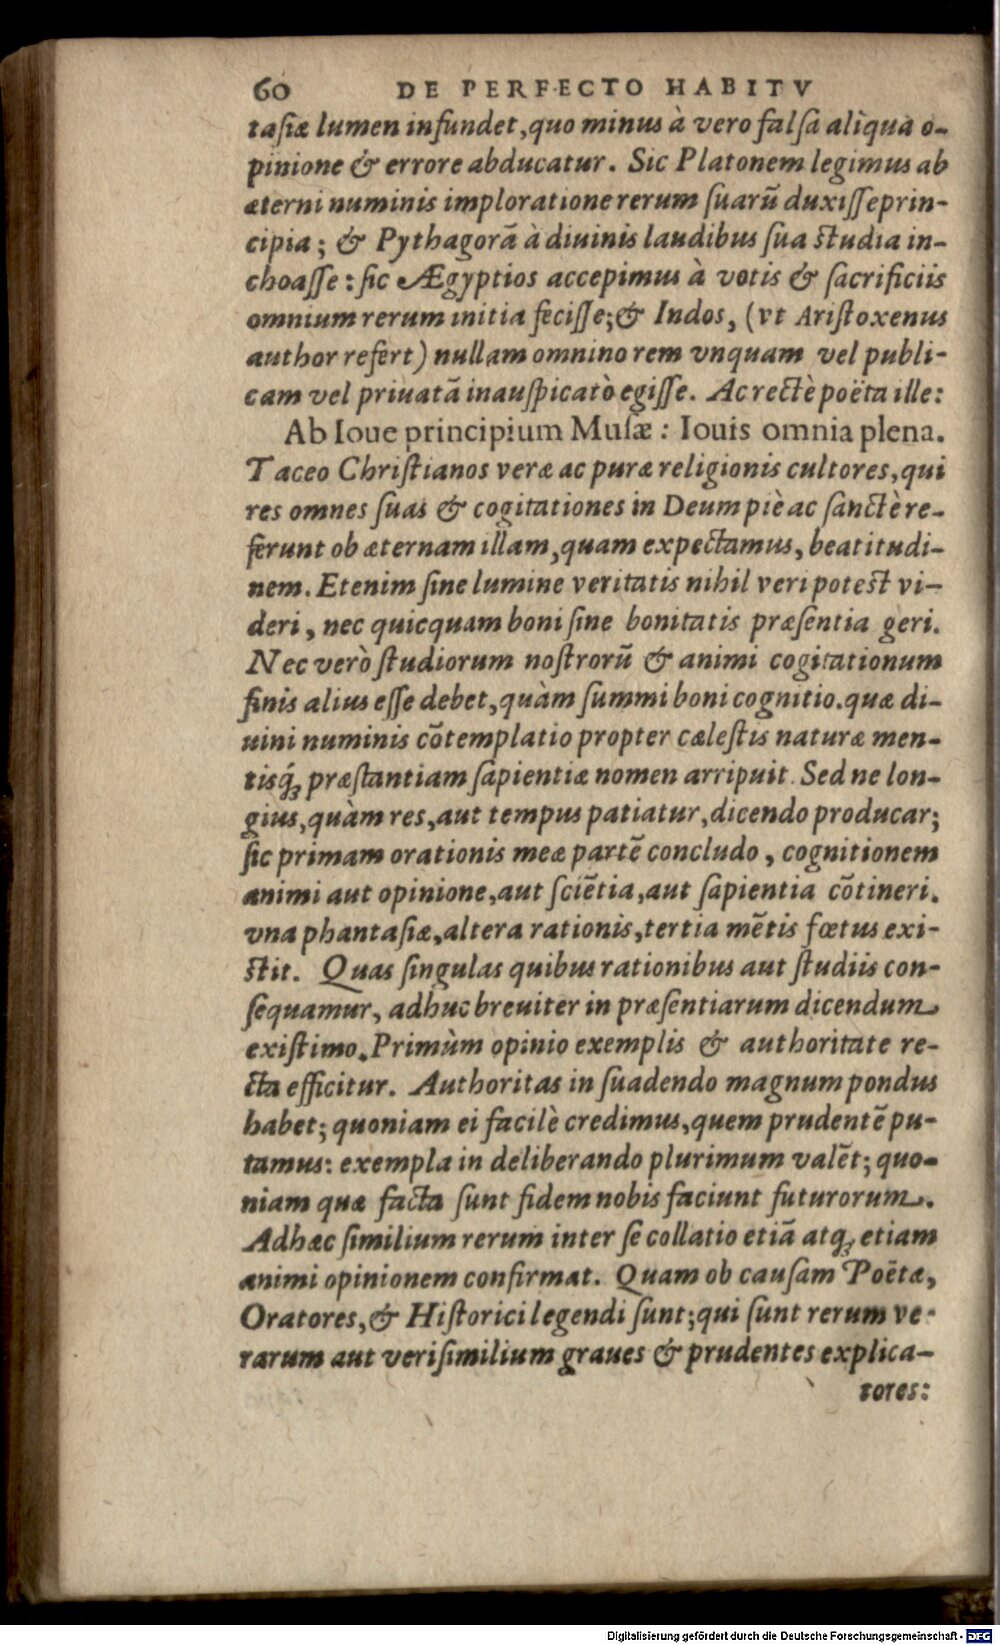 60 DE PERFECTO HABITV
tasiæ lumen infundet, quo minus à vero falsa aliqua o-
pinione & errore abducatur. Sic Platonem legimus ab
æterni numinis imploratione rerum suarũ duxisse prin-
cipia; & Pythagorã à diuinis laudibus sua studia in-
choasse: sic Ægyptios accepimus à votis & sacrificiis
omnium rerum initia fecisse; & Indos, (vt Aristoxenus
author refert) nullam omnino rem vnquam vel publi-
cam vel priuatã inauspicatò egisse. Ac rectè poëta ille:
Ab Ioue principium Musæ: Iouis omnia plena.
Taceo Christianos veræ ac puræ religionis cultores, qui
res omnes suas & cogitationes in Deum piè ac sanctè re-
ferunt ob æternam illam, quam expectamus, beatitudi-
nem. Etenim sine lumine veritatis nihil veri potest vi-
deri, nec quicquam boni sine bonitatis præsentia geri.
Nec verò studiorum nostrorũ & animi cogitationum
finis alius esse debet, quàm summi boni cognitio. quæ di-
uini numinis cõtemplatio propter cælestis naturæ men-
tisq́ꝫ præstantiam sapientiæ nomen arripuit. Sed ne lon-
gius, quàm res, aut tempus patiatur, dicendo producar;
sic primam orationis meæ partẽ concludo, cognitionem
animi aut opinione, aut sciẽtia, aut sapientia cõtineri.
vna phantasiæ, altera rationis, tertia mẽtis fœtus exi-
stit. Quas singulas quibus rationibus aut studiis con-
sequamur, adhuc breuiter in præsentiarum dicendum
existimo. Primùm opinio exemplis & authoritate re-
cta efficitur. Authoritas in suadendo magnum pondus
habet; quoniam ei facilè credimus, quem prudentẽ pu-
tamus: exempla in deliberando plurimum valẽt; quo-
niam quæ facta sunt fidem nobis faciunt futurorum.
Adhæc similium rerum inter se collatio etiã atqꝫ etiam
animi opinionem confirmat. Quam ob causam Poëtæ,
Oratores, & Historici legendi sunt; qui sunt rerum ve-
rarum aut verisimilium graues & prudentes explica-
tores:
Digitalisierung gefördert durch die Deutsche Forschungsgemeinschaft - DFG